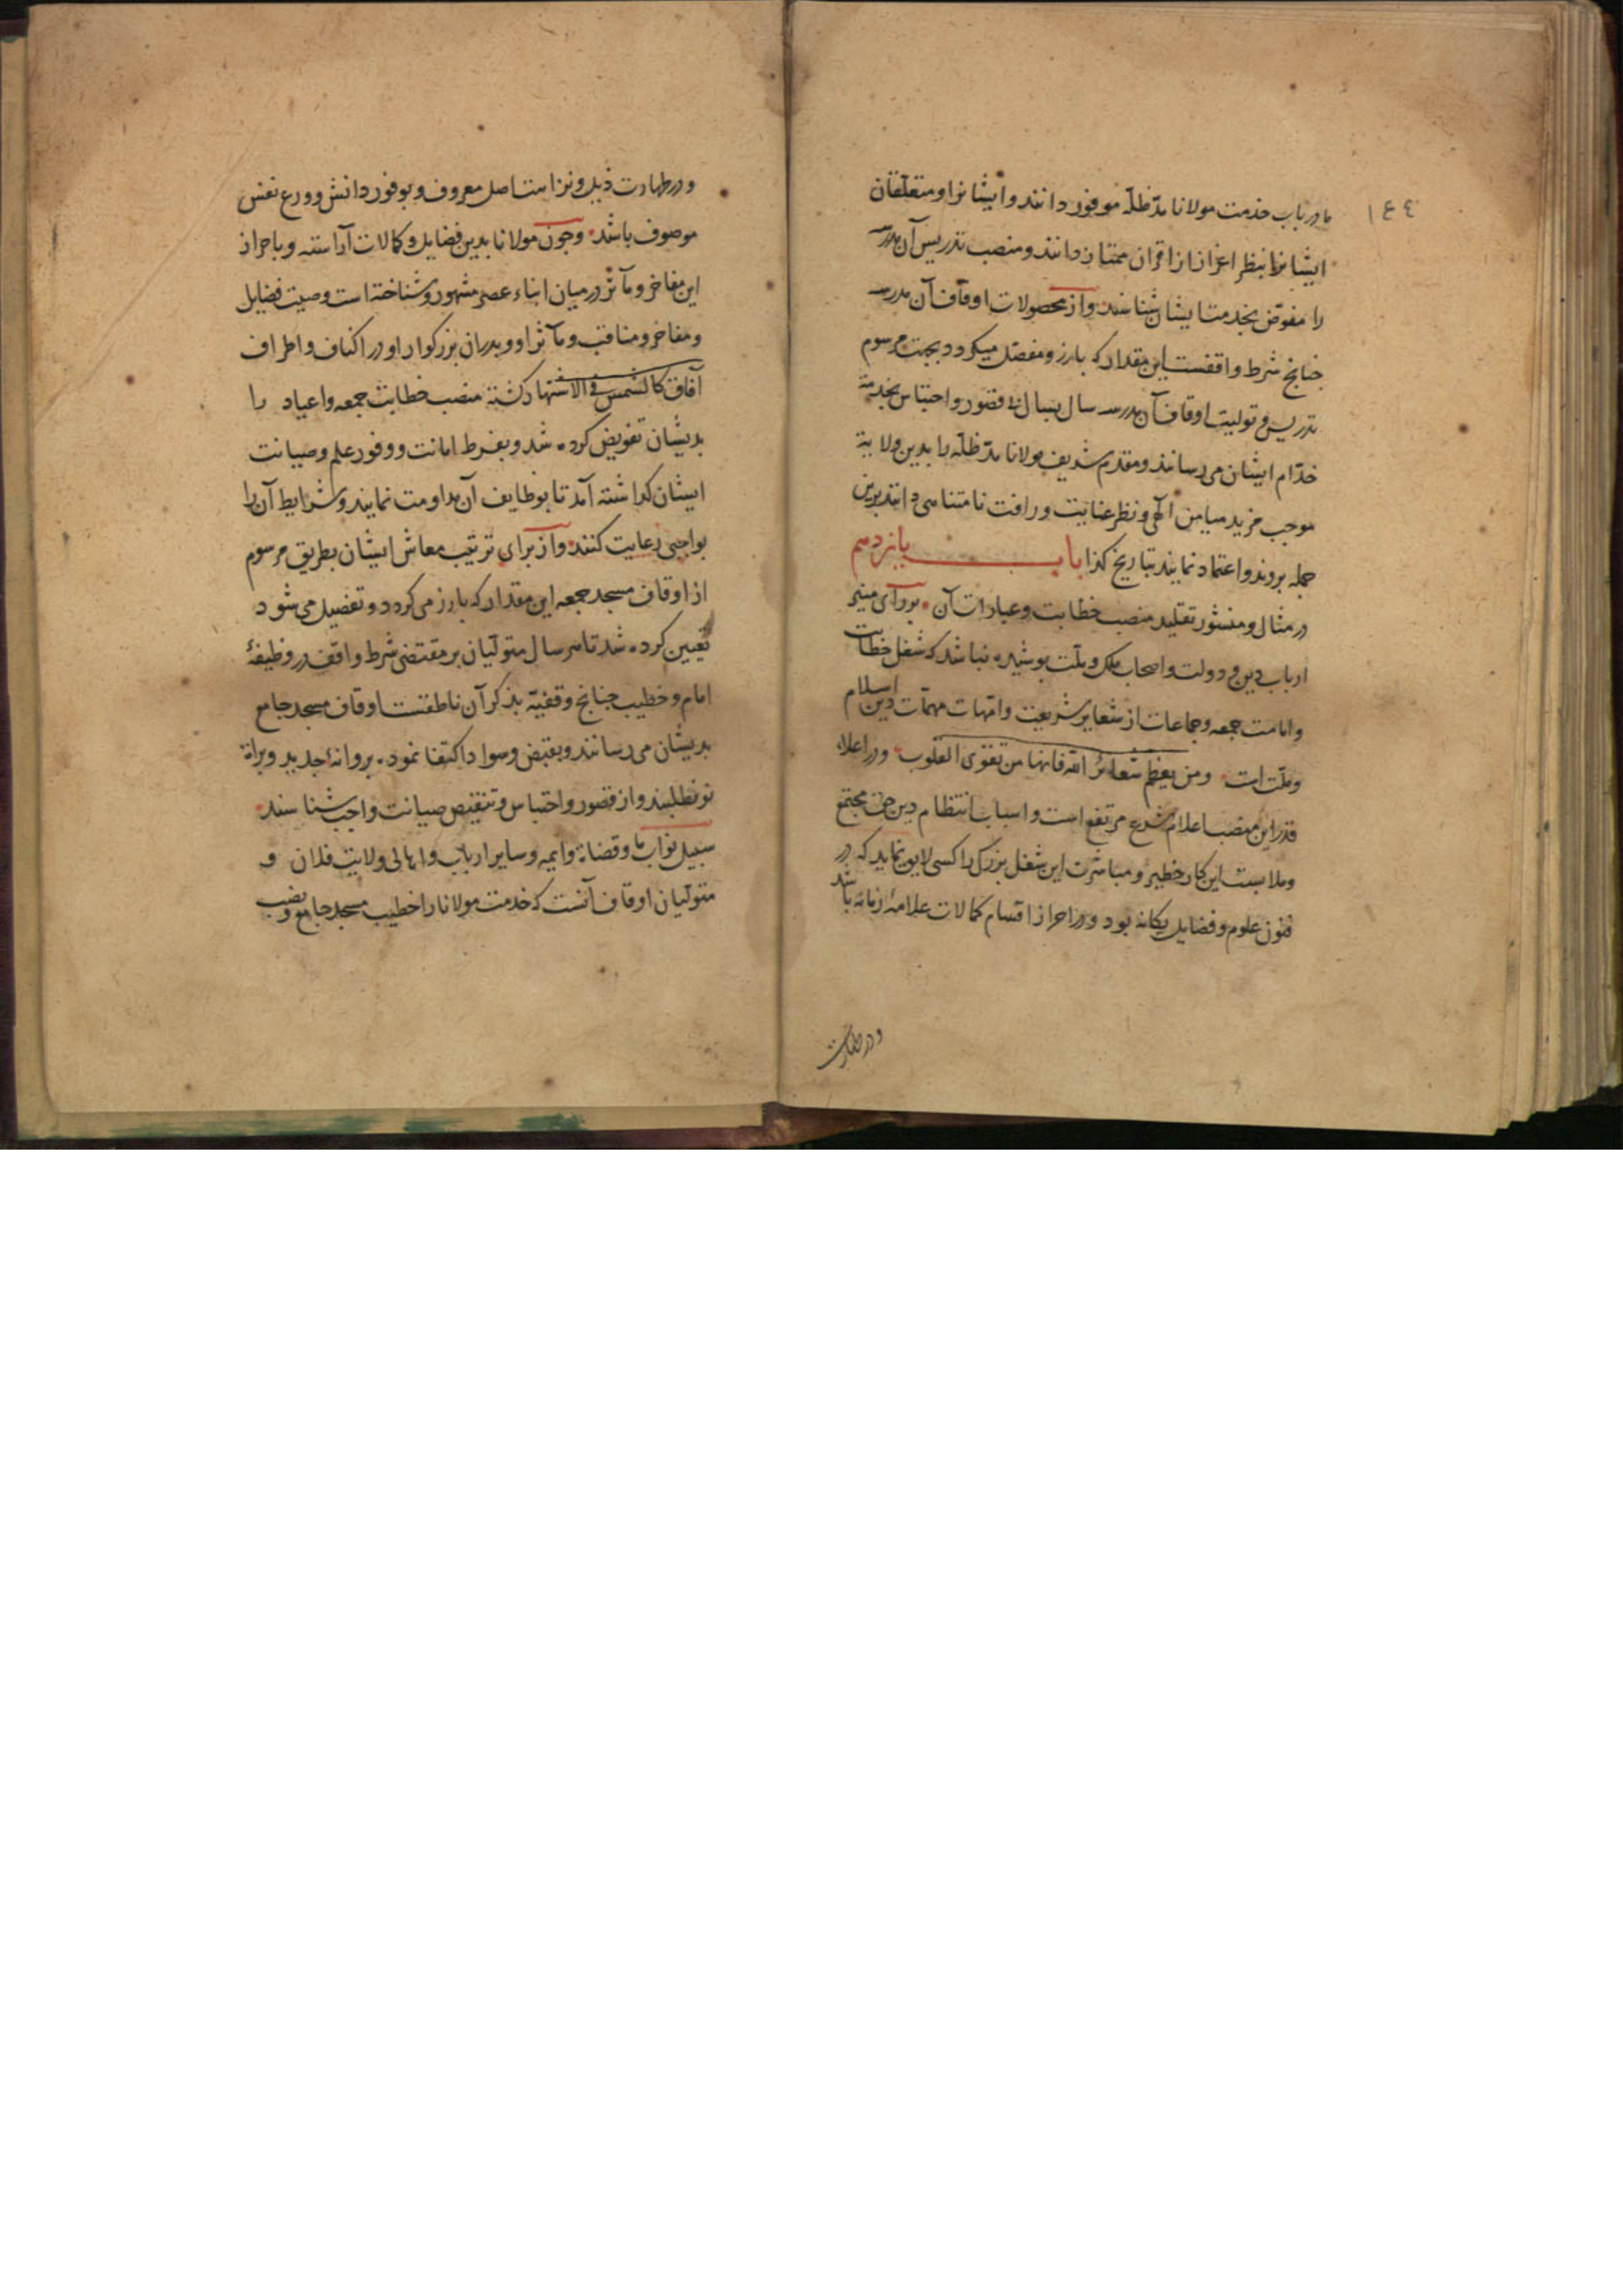 ١٤٤
ما در باب خدمت مولانا مدّ ظلّه موفور دانند و ایشانرا و متعلّقان
ایشانرا بنظر اعزاز از اقران ممتاز دانند و منصب تدریس آن مدرسه
را مفوّض بخدمت ایشان شناسند و از محصولات اوقاف آن مدرسه
جنانج شرط واقفست این مقدار که بارز و مفصّل میکردد بجهت مرسوم
تدریس و تولیت اوقاف آن مدرسه سال بسال بی قصور و احتباس بخدمة
خدّام ایشان می رسانند و مقدم شریف مولانا مدّ ظلّه را بدین ولایة
موجب مزید میامن آلهی و نظر عنایت و رافت نامتناهی دانند برین
جمله بروند و اعتماد نمایند بتاریخ کذا باب یانزدهم
در مثال و منشور تقلید منصب خطابت و عبارات آن بر رای منیر
ارباب دین و دولت و اصحاب ملک و ملّت بوشیده نباشد که شغل خطابت
و امامت جمعه و جماعات از شعایر شریعت و امّهات مهمّات دین اسلام
و ملّت است ومن یعظم شعائر الله فانها من تقوی القلوب و در اعلاء
قدر این منصب اعلام شرع مرتفع است و اسباب انتظام دین حق مجتمع
و ملابست این کار خطیر و مباشرت این شغل بزرک را کسی لایق نماید که در
فنون علوم و فضایل یکانه بود و در احراز اقسام کمالات علامهٔ زمانه باشد
و در طهارت
و در طهارت ذیل و نزاهت اصل معروف و بوفور دانش و ورع نفس
موصوف باشد و جون مولانا بدین فضایل و کمالات آراسته و باحراز
این مفاخر و مآثر در میان ابناء عصر مشهور و شناخته است و صیت فضایل
و مفاخر و مناقب و مآثر او و بدران بزرکوار او در اکناف و اطراف
آفاق کالشمس فی الاشتهار کشته منصب خطابت جمعه و اعیاد را
بدیشان تفویض کرده شد و بفرط امانت و وفور علم و صیانت
ایشان کذاشته آمد تا بوظایف آن مداومت نمایند و شرایط آن را
بواجبی رعایت کنند و از برای ترتیب معاش ایشان بطریق مرسوم
از اوقاف مسجد جمعه این مقدار که بارز می کردد و تفصیل می شود
تعیین کرده شد تا هر سال متولّیان بر مقتضی شرط واقف در وظیفهٔ
امام و خطیب جنانج وقفیّه بذکر آن ناطقست اوقاف مسجد جامع
بدیشان می رسانند و بقبض و سواد اکتفا نموده بروانهٔ جدید و براة
نو نطلبند و از قصور و احتباس و تنقیص صیانت واجب شناسند
سبیل نوّاب ما و قضاة و ایمه و سایر ارباب و اهالی ولایت فلان و
متولّیان اوقاف آنست که خدمت مولانا را خطیب مسجد جامع و نصب